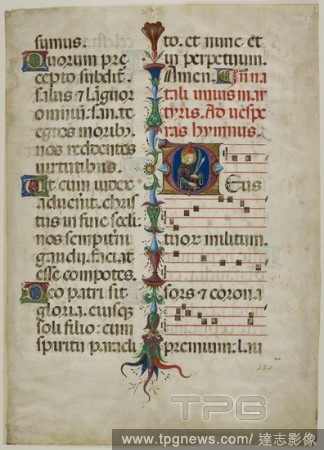 sumus.
Quorum pre
cepto subdit.
salus & languor
omnium. sanate
egros moribus.
nos reddentes
virtutibus.
Ut cum iudex
advenerit. chris
tus in fine secli
nos sempiterni
gaudii. faciat
esse compotes.
Deo patri sit
gloria. eiusqz
soli filio. cum
spiritu paracli
to. et nunc et
in perpetuum.
Amen. In na
tali unius mar
tyris. Ad vespe
ras hymnus.
Deus
tuor militum.
sors & corona
premium. lau
TPG
www.tpgnews.com / 達志影像